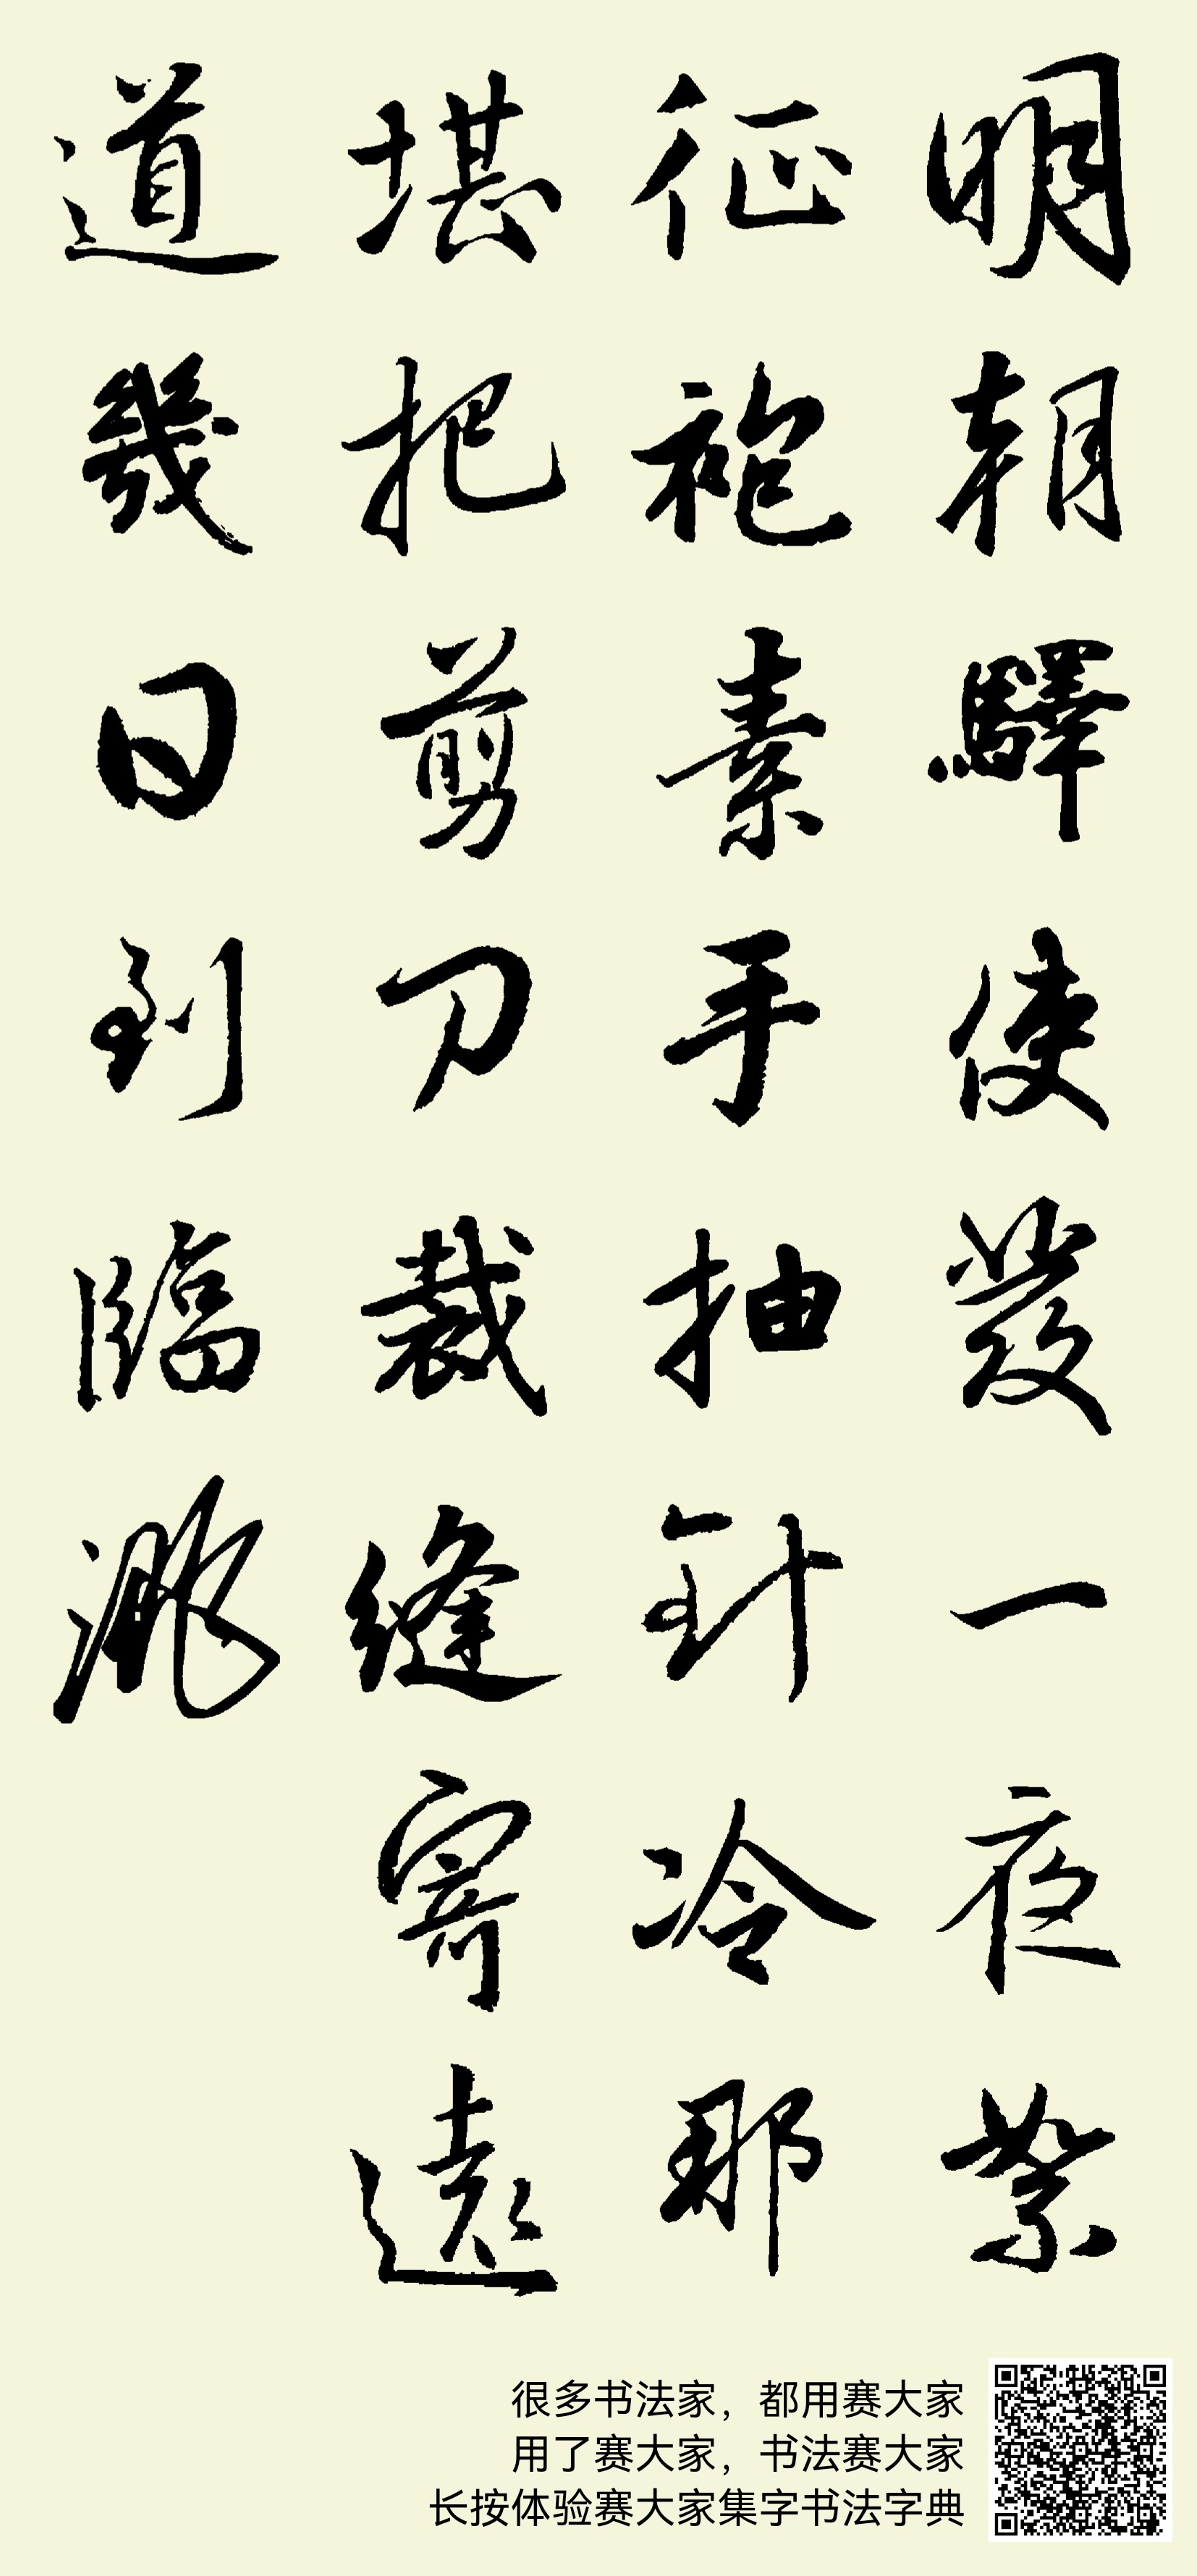 明朝驛使發一夜絮
征袍素手抽針冷那
堪把剪刀裁縫寄遠
道幾日到臨洮
很多书法家，都用赛大家
用了赛大家，书法赛大家
长按体验赛大家集字书法字典